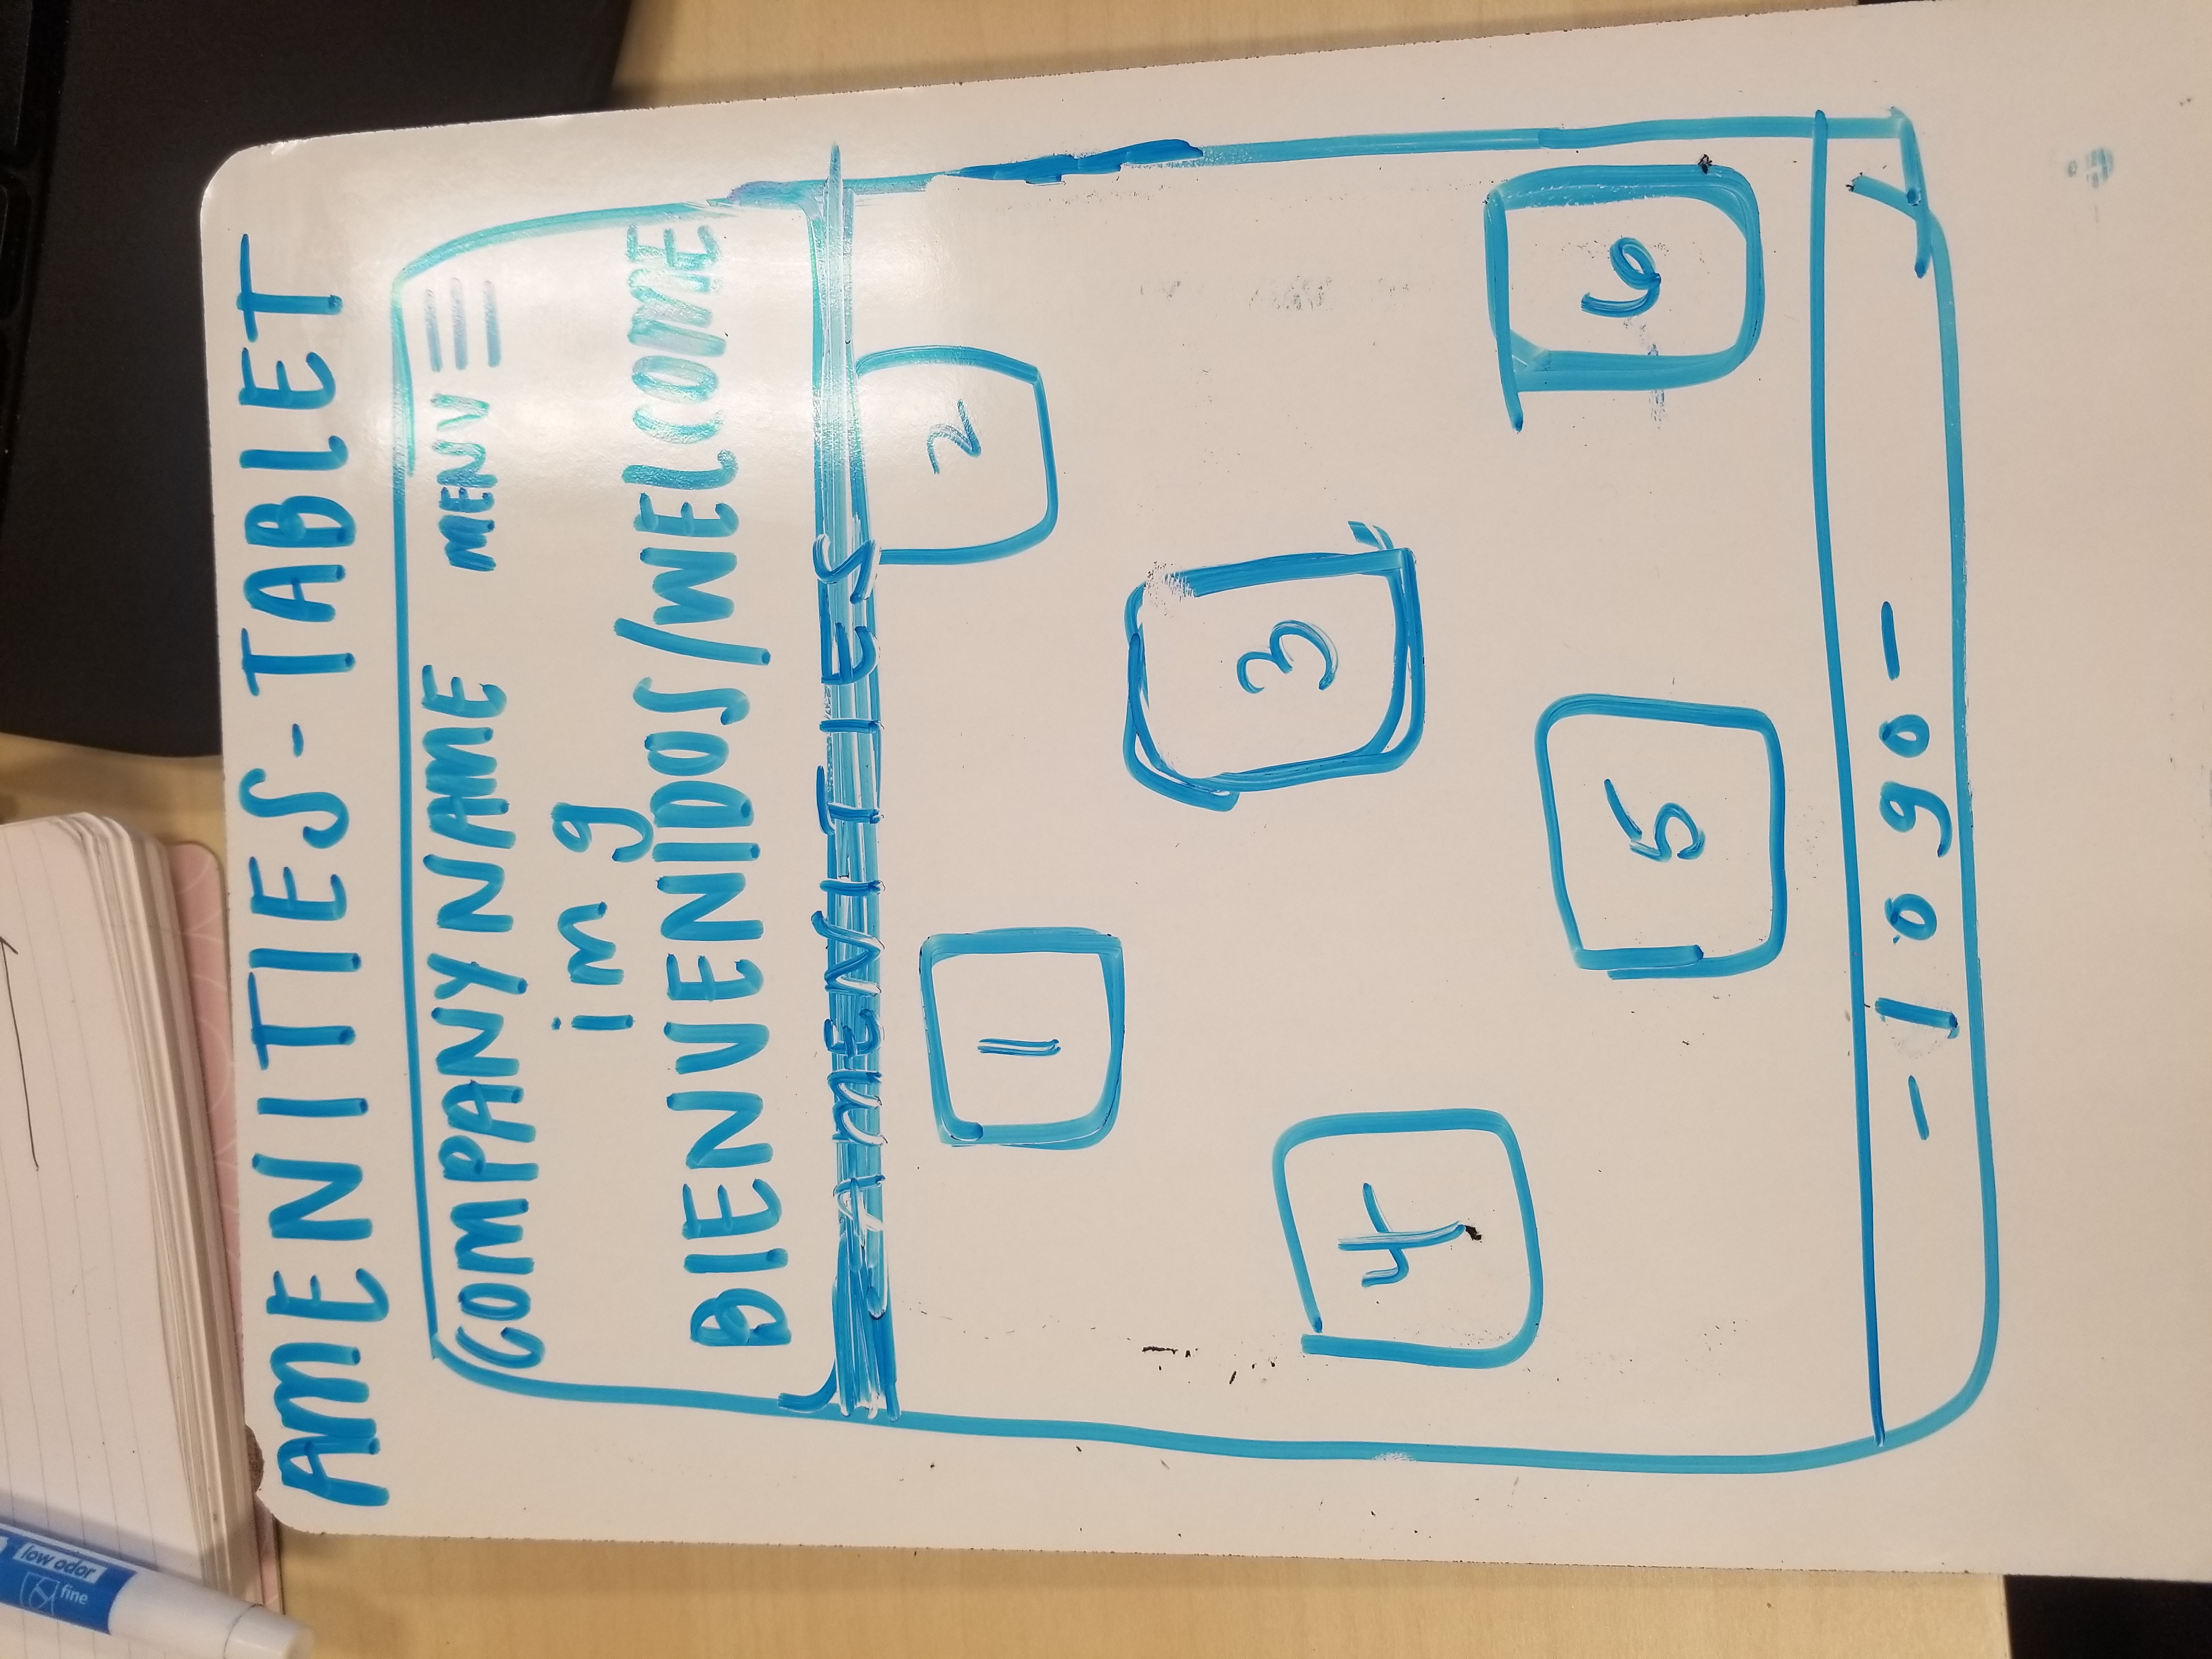 low odor
fine
AMENITIES-TABLET
COMPANY NAME MENU
img
BIENVENIDOS/WELCOME
AMENITIES
1
2
3
4
5
6
-logo-